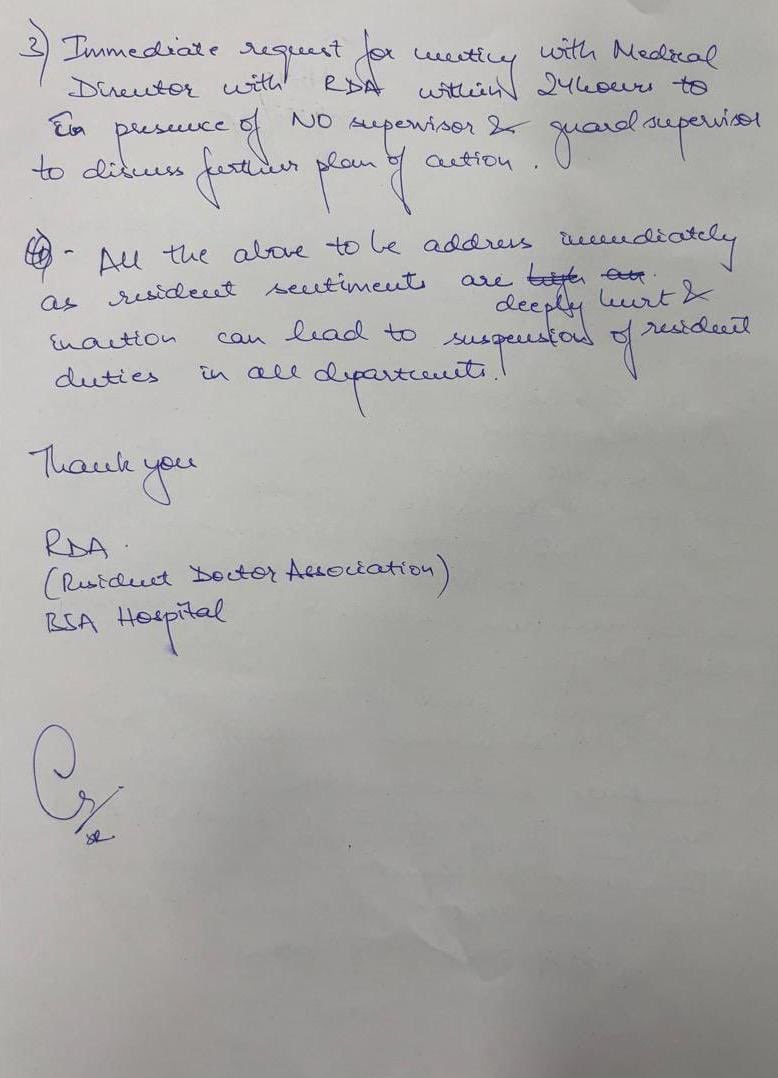 3) Immediate request for meeting with Medical
Director with RDA within 24hours to
In presence of NO supervisor & guard supervisor
to discuss further plan of action.
4) - All the above to be address immediately
as resident sentiments are
deeply hurt &
inaction can lead to suspension of resident
duties in all departments.
Thank you
RDA.
(Resident Doctor Association)
BSA Hospital